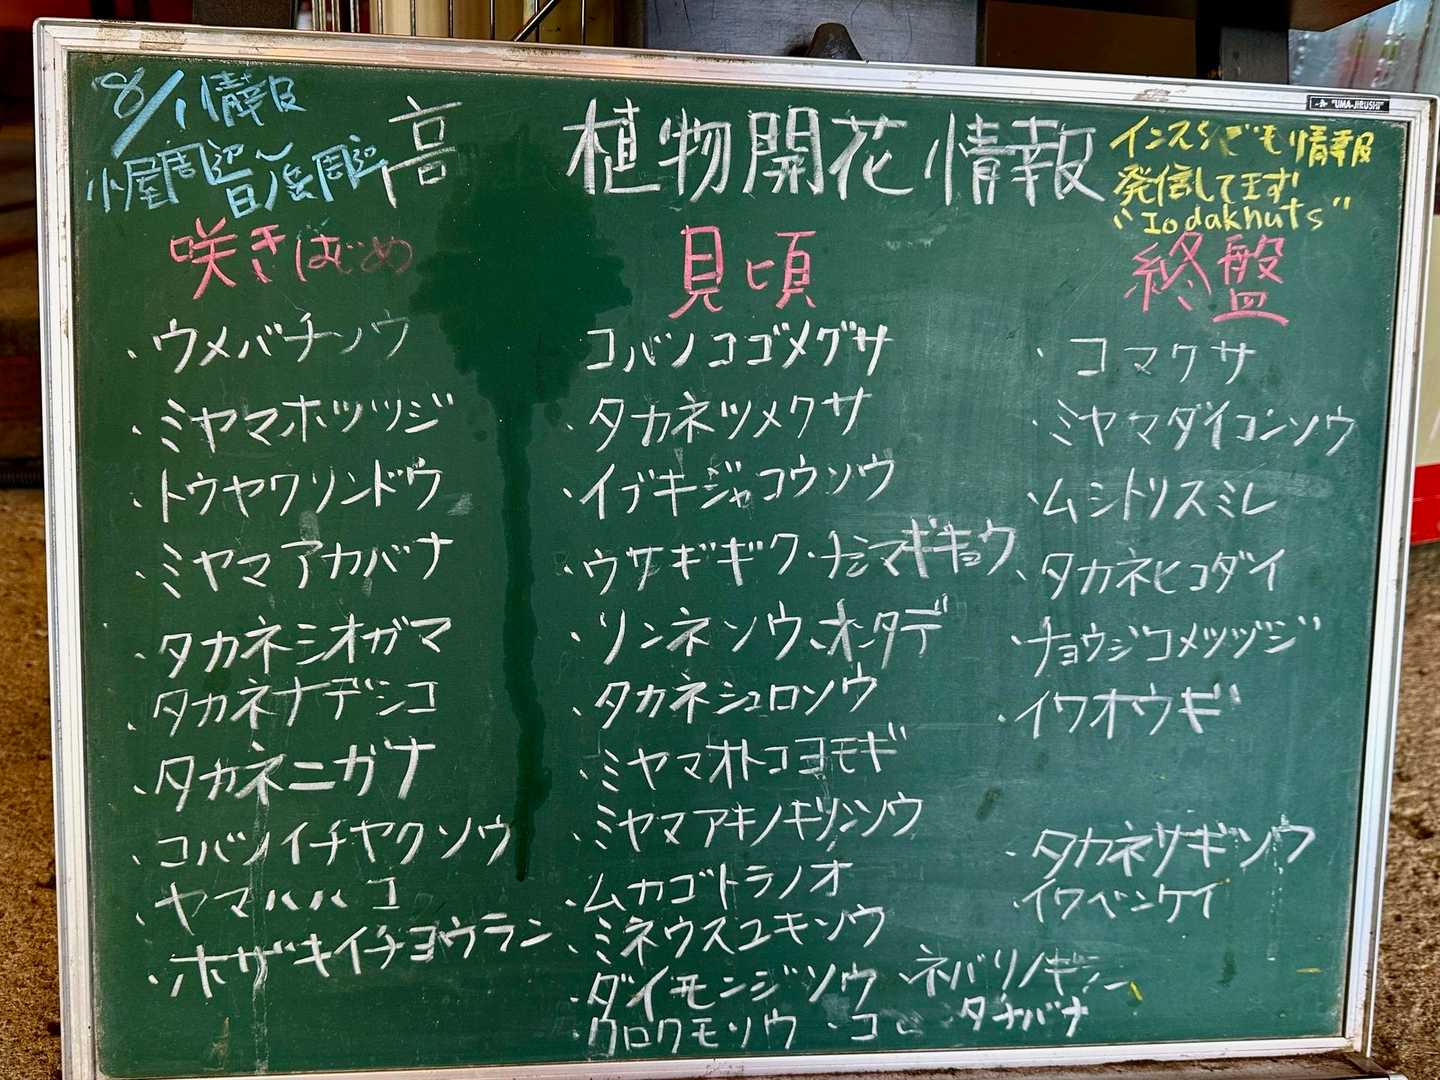 8/1 情報
小屋周辺〜
日ノ岳周辺
高 植物開花情報
インスタでも情報
発信してます
"Iodakhuts"
"UMA-JIRUSHI"
咲きはじめ
・ウメバチソウ
・ミヤマホツツジ
・トウヤクリンドウ
・ミヤマアカバナ
・タカネシオガマ
・タカネナデシコ
・タカネニガナ
・コバノイチヤクソウ
・ヤマハハコ
・ホザキイチヨウラン
見頃
コバノコゴメグサ
・タカネツメクサ
・イブキジャコウソウ
・ウサギギク・チシマギキョウ
・リンネソウ・オンタデ
・タカネシュロソウ
・ミヤマオトコヨモギ
・ミヤマアキノキリンソウ
・ムカゴトラノオ
・ミネウスユキソウ
・ダイモンジソウ ・ネバリノギラン
・クロクモソウ ・コ タチバナ
終盤
・コマクサ
・ミヤマダイコンソウ
・ムシトリスミレ
・タカネヒゴダイ
・チョウジコメツツジ
・イワオウギ
・タカネサギソウ
・イワベンケイ